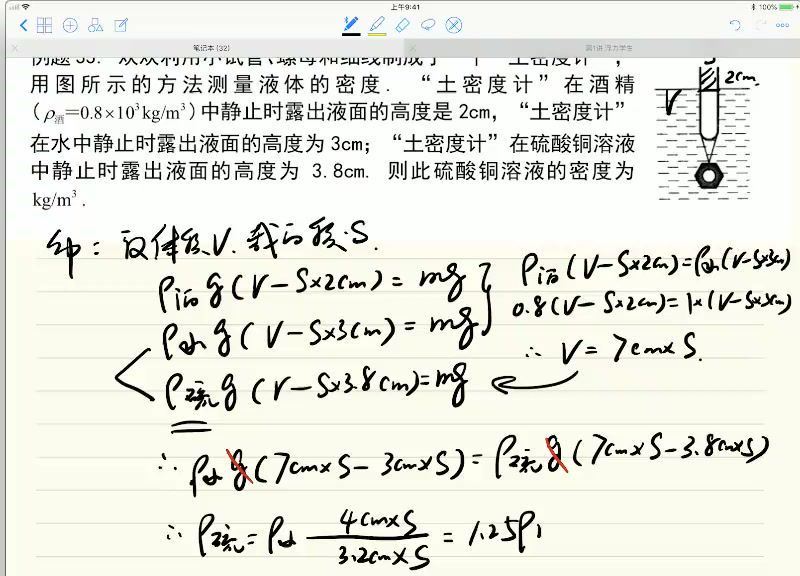 上午9:41
100%
笔记本 (32)
第1讲 浮力学生
用图所示的方法测量液体的密度.“土密度计”在酒精
(ρ酒=0.8×10³kg/m³)中静止时露出液面的高度是2cm,“土密度计”
在水中静止时露出液面的高度为3cm;“土密度计”在硫酸铜溶液
中静止时露出液面的高度为 3.8cm. 则此硫酸铜溶液的密度为
kg/m³.
2cm
解:设体积V.截面积S.
ρ酒g(V-S×2cm)=mg
ρ水g(V-S×3cm)=mg
ρ硫g(V-S×3.8cm)=mg
ρ酒(V-S×2cm)=ρ水(V-S×3cm)
0.8(V-S×2cm)=1×(V-S×3cm)
∴ V=7cm×S.
∴ ρ水g(7cm×S-3cm×S)=ρ硫g(7cm×S-3.8cm×S)
∴ ρ硫=ρ水 4cm×S / 3.2cm×S = 1.25ρ